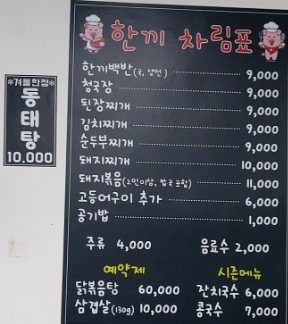 한끼 차림표
한끼백반(국, 쌈면) 9,000
청국장 9,000
된장찌개 9,000
김치찌개 9,000
순두부찌개 9,000
돼지찌개 10,000
돼지볶음(2인이상, 밥국 포함) 11,000
고등어구이 추가 6,000
공기밥 1,000
주류 4,000 음료수 2,000
예약제 시즌메뉴
닭볶음탕 60,000 잔치국수 6,000
삼겹살(130g) 10,000 콩국수 7,000
*겨울한정*
동태탕
10,000